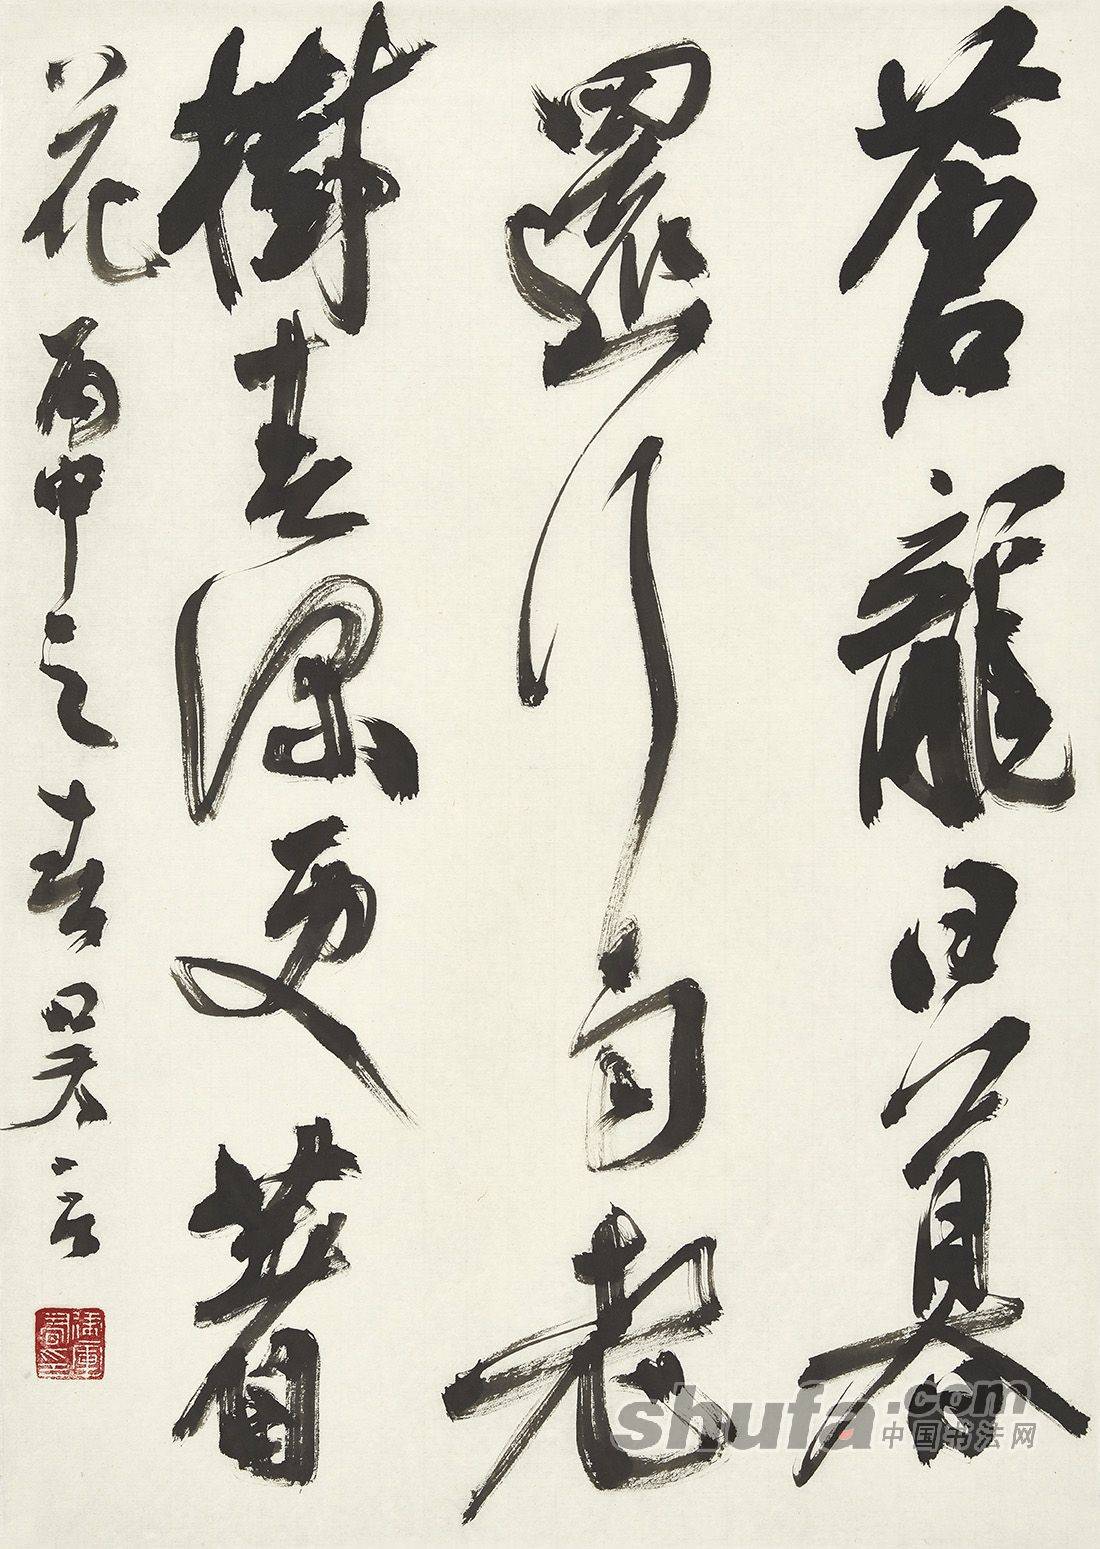 蒼龍日暮
還行雨老
樹春深更著
花 丙申之春 吴言
shufa.com
中国书法网